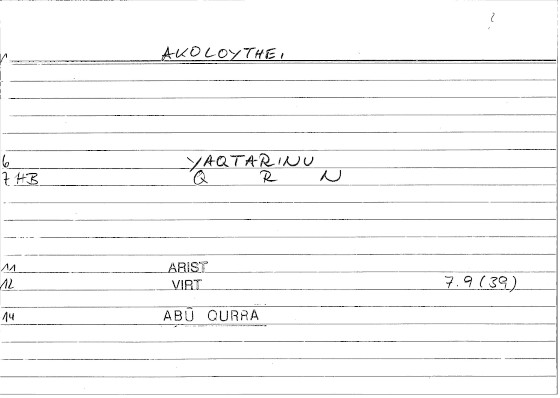 AKOLOYTHEI
6 YAQTARINU
7 HB Q R N
11 ARIST
12 VIRT 7.9 (39)
14 ABŪ QURRA